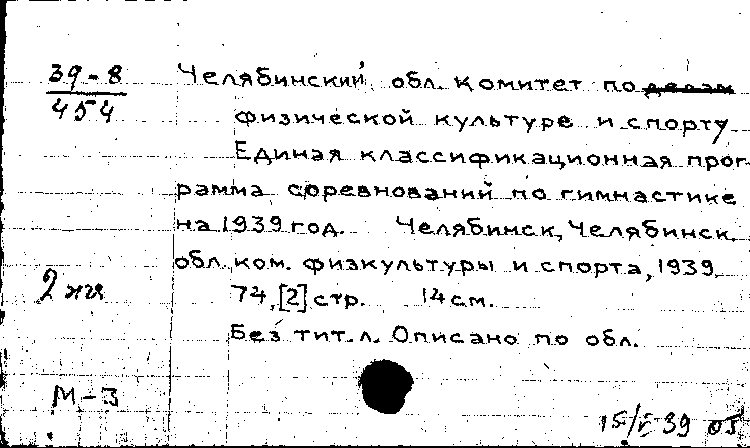 39-8
454
Челябинский обл. комитет по делам
физической культуре и спорту
Единая классификационная прог-
рамма соревнований по гимнастике
на 1939 год. Челябинск, Челябинск.
обл. ком. физкультуры и спорта, 1939
74, [2] стр. 14 см.
Без тит. л. Описано по обл.
2
М-3
39